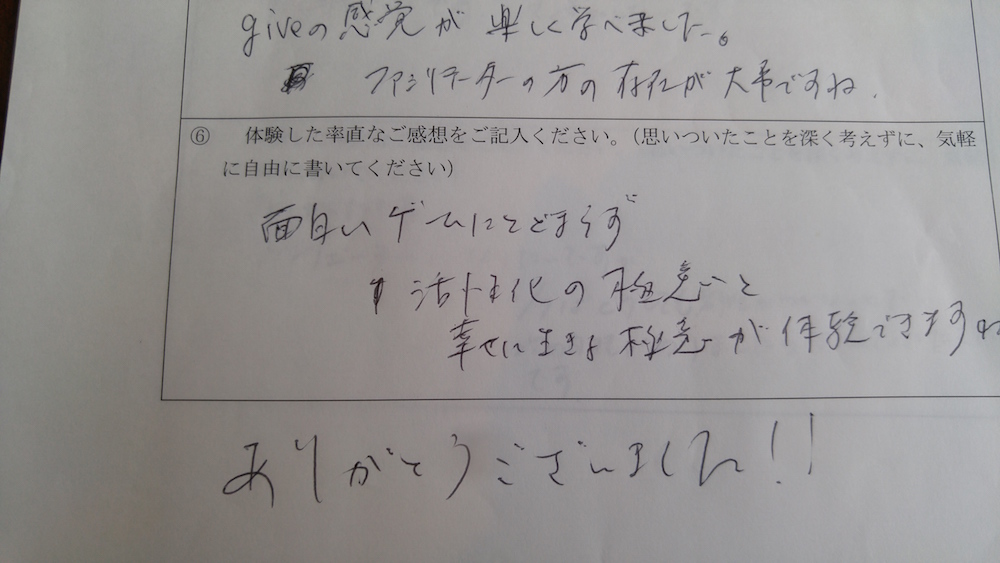 giveの感覚が楽しく学べました。
ファシリテーターの方の存在が大事ですね.
⑥ 体験した率直なご感想をご記入ください。（思いついたことを深く考えずに、気軽
に自由に書いてください）
面白いゲームにとどまらず
活性化の極意と
幸せに生きる極意が体験できますね
ありがとうございました!!